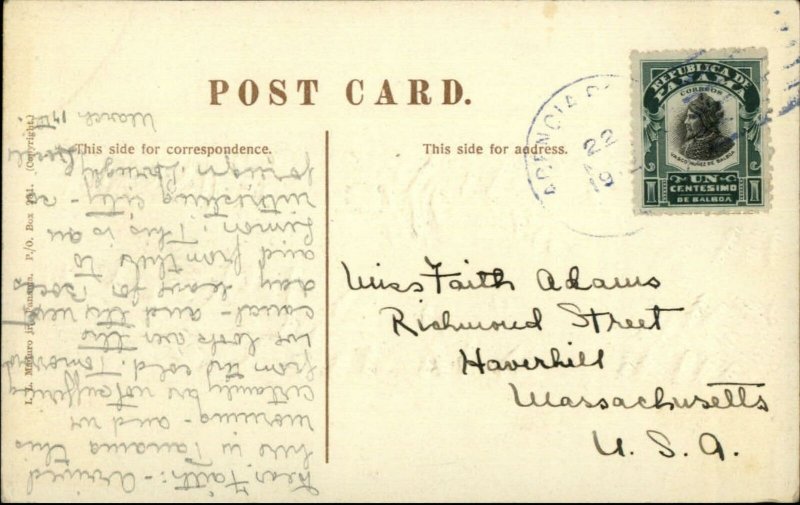 POST CARD.
This side for correspondence.
This side for address.
I. L. Maduro jr. Panama. P./O. Box (Copyright.)
AGENCIA
22
19
REPUBLICA DE
PANAMA
CORREOS
VASCO NUÑEZ DE BALBOA
1 UN 1
CENTESIMO
DE BALBOA
Miss Faith Adams
Richmond Street
Haverhill
Massachusetts
U. S. A.
March 17
Dear Faith:- Arrived
here in Panama this
morning - and we
certainly are not suffering
from the cold. Tomorrow
we look over the
canal - and the next
day leave for Bocas
and from there to
Limon. This is an
interesting city - a
foreign